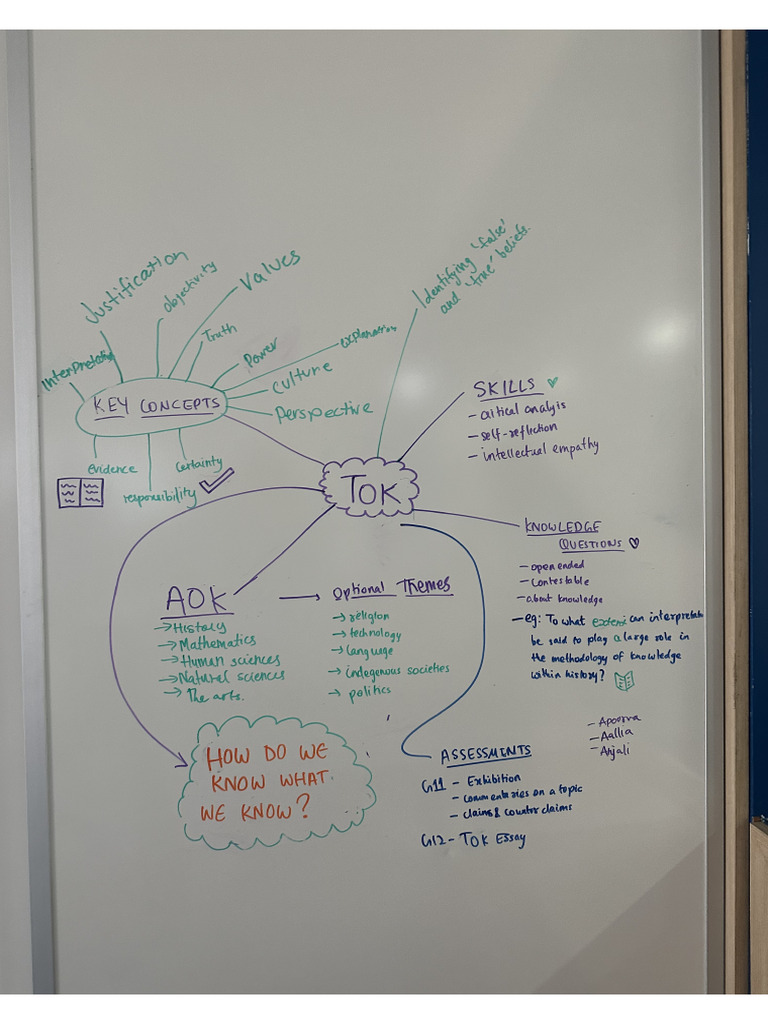 Justification
Objectivity
Values
Identifying 'false'
and 'true' beliefs.
Interpretation
Truth
Power
explanation
culture
Perspective
KEY CONCEPTS
evidence
certainty
responsibility
TOK
SKILLS
- critical analysis
- self-reflection
- intellectual empathy
KNOWLEDGE
QUESTIONS
- open ended
- contestable
- about knowledge
- eg: To what extent can interpretation
be said to play a large role in
the methodology of knowledge
within history?
AOK
→ History
→ Mathematics
→ Human sciences
→ Natural sciences
→ The arts.
Optional Themes
→ religion
→ technology
→ language
→ indegenous societies
→ politics
HOW DO WE
KNOW WHAT
WE KNOW?
- Apoorva
- Aallia
- Anjali
ASSESSMENTS
G11 - Exhibition
- commentaries on a topic
- claims & counter claims
G12 - TOK Essay